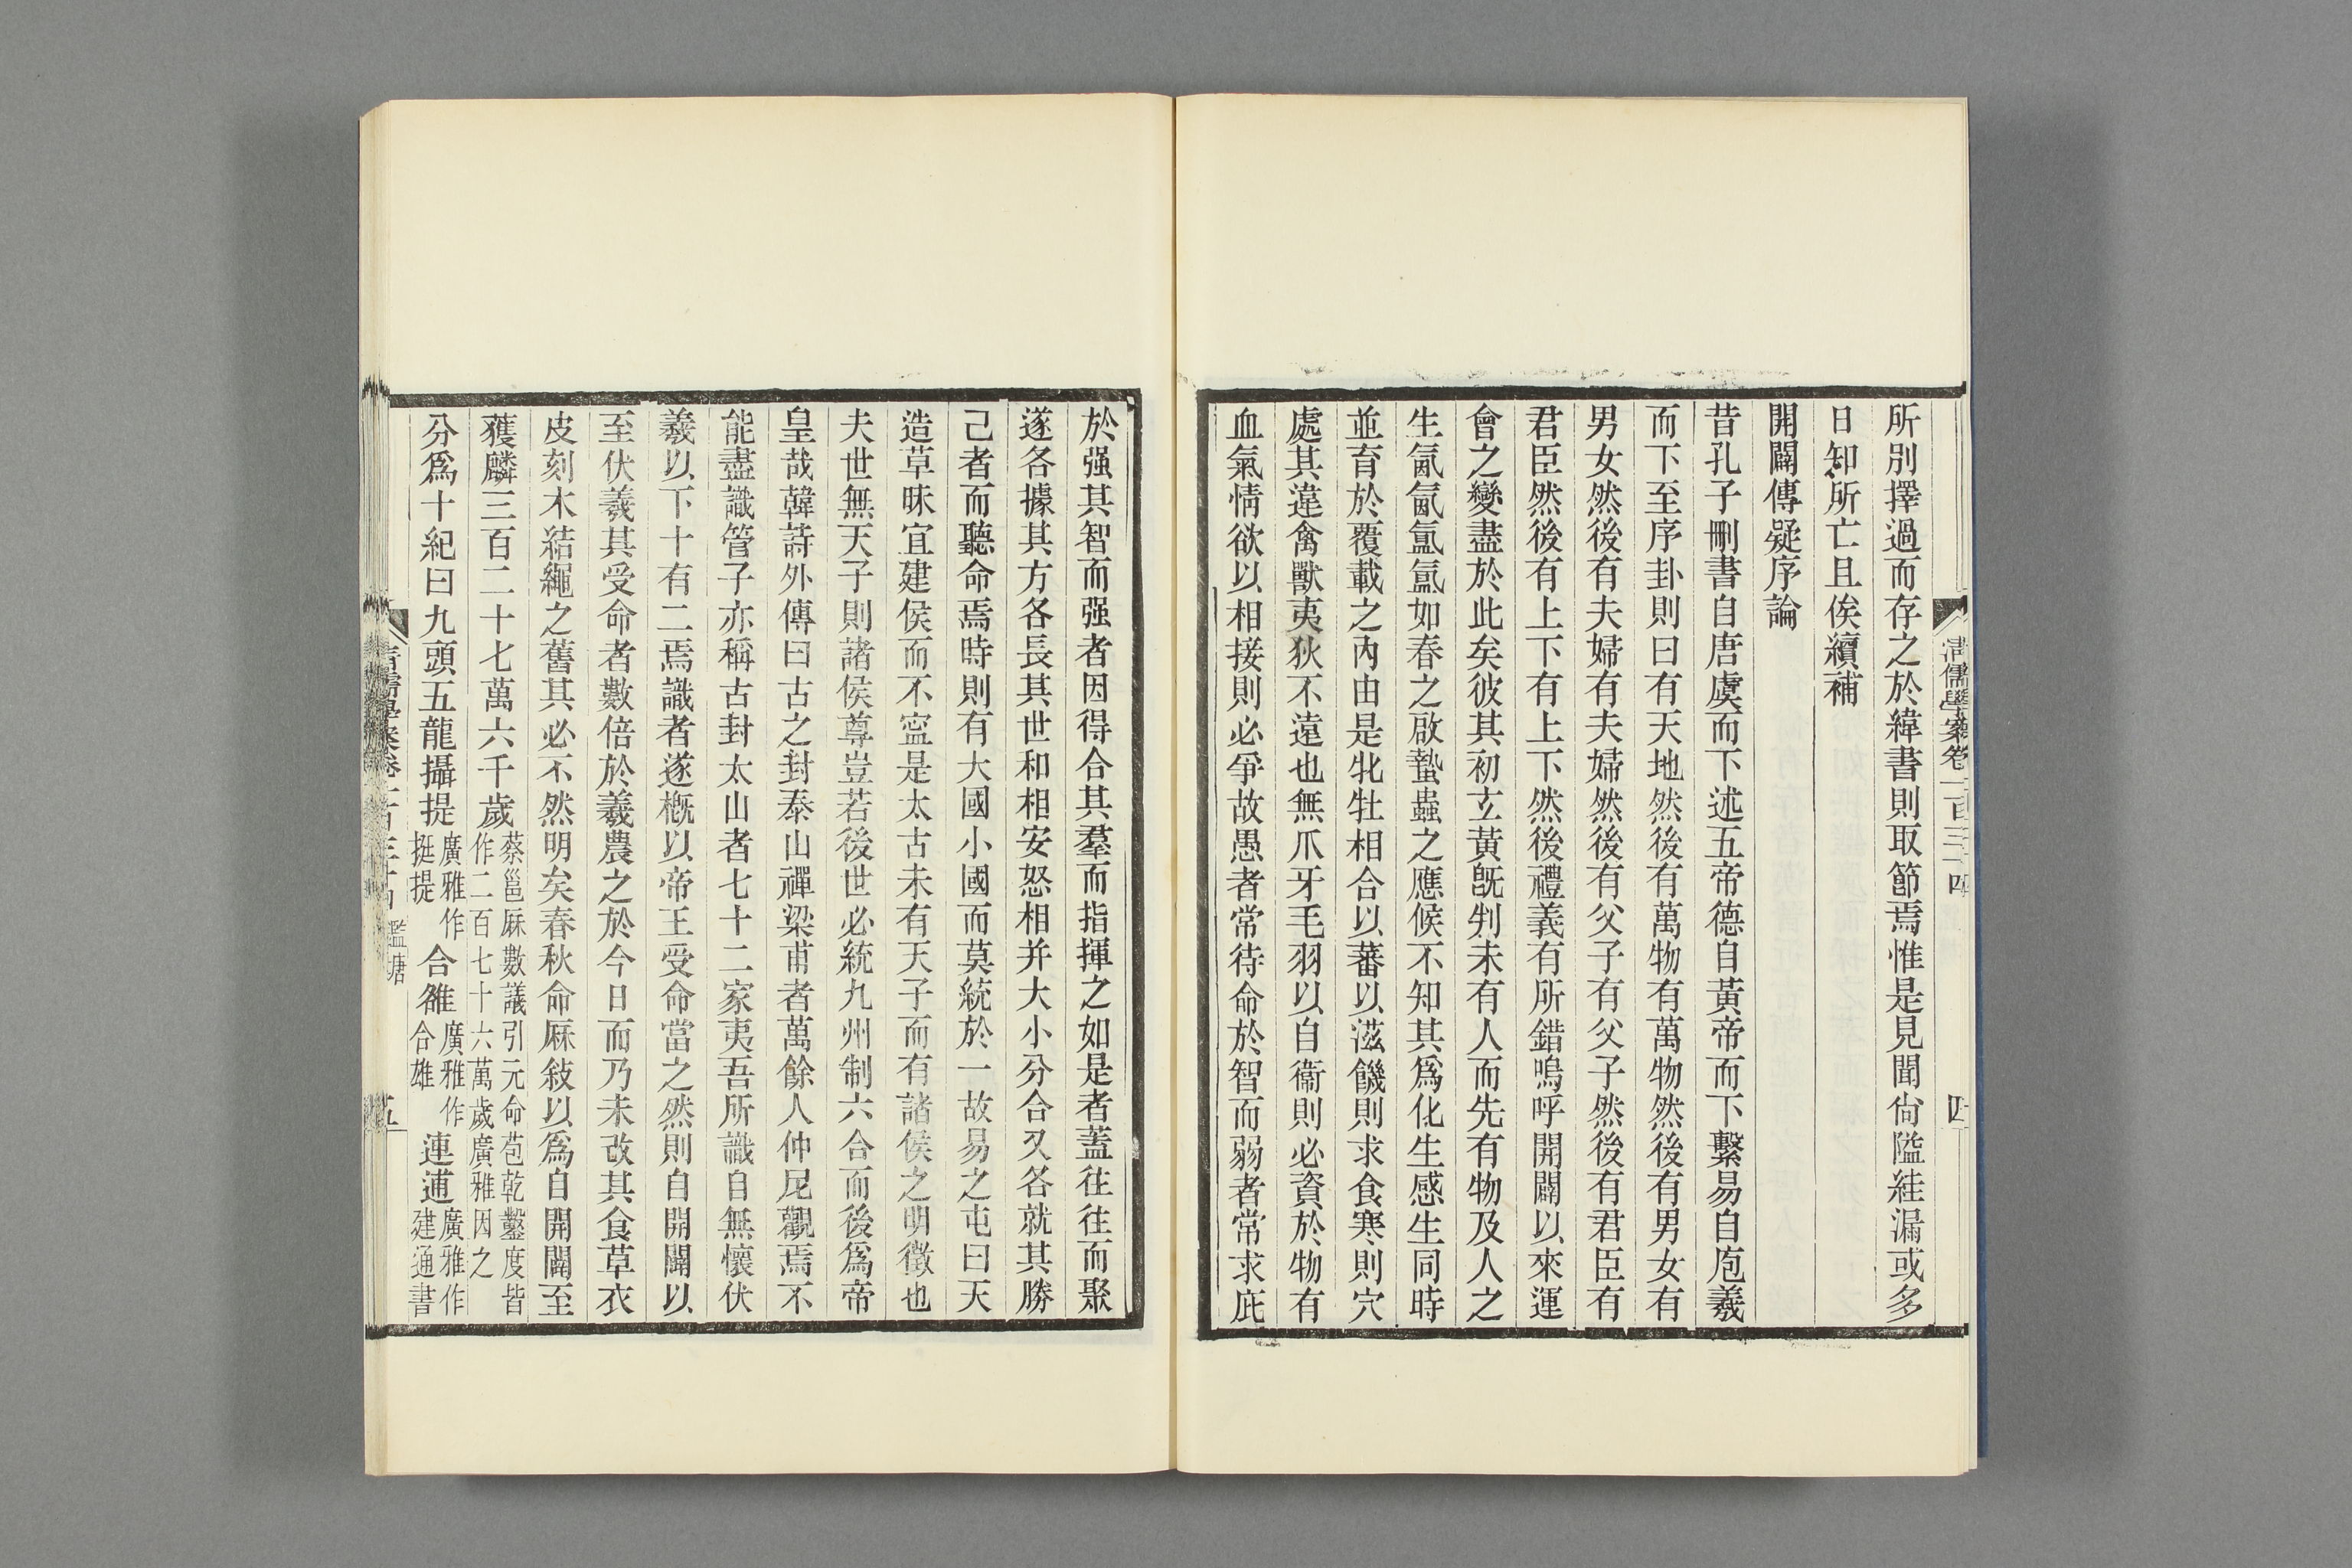 清儒學案卷二百三十四
四
所別擇過而存之於緯書則取節焉惟是見聞尙隘絓漏或多
日知所亡且俟續補
開闢傳疑序論
昔孔子刪書自唐虞而下述五帝德自黃帝而下繫易自庖羲
而下至序卦則曰有天地然後有萬物有萬物然後有男女有
男女然後有夫婦有夫婦然後有父子有父子然後有君臣有
君臣然後有上下有上下然後禮義有所錯嗚呼開闢以來運
會之變盡於此矣彼其初玄黃旣判未有人而先有物及人之
生氤氤氳氳如春之啟蟄蟲之應候不知其爲化生感生同時
並育於覆載之內由是牝牡相合以蕃以滋饑則求食寒則穴
處其違禽獸夷狄不遠也無爪牙毛羽以自衞則必資於物有
血氣情欲以相接則必爭故愚者常待命於智而弱者常求庇
於强其智而强者因得合其羣而指揮之如是者蓋往往而聚
遂各據其方各長其世和相安怒相并大小分合又各就其勝
己者而聽命焉時則有大國小國而莫統於一故易之屯曰天
造草昧宜建侯而不寍是太古未有天子而有諸侯之明徵也
夫世無天子則諸侯尊豈若後世必統九州制六合而後爲帝
皇哉韓詩外傳曰古之封泰山禪梁甫者萬餘人仲尼觀焉不
能盡識管子亦稱古封太山者七十二家夷吾所識自無懷伏
羲以下十有二焉識者遂槪以帝王受命當之然則自開闢以
至伏羲其受命者數倍於羲農之於今日而乃未改其食草衣
皮刻木結繩之舊其必不然明矣春秋命厤敍以爲自開闢至
獲麟三百二十七萬六千歲蔡邕厤數議引元命苞乾鑿度皆作二百七十六萬歲廣雅因之
分爲十紀曰九頭五龍攝提廣雅作挺提合雒廣雅作合雄連逋廣雅作建通書
五